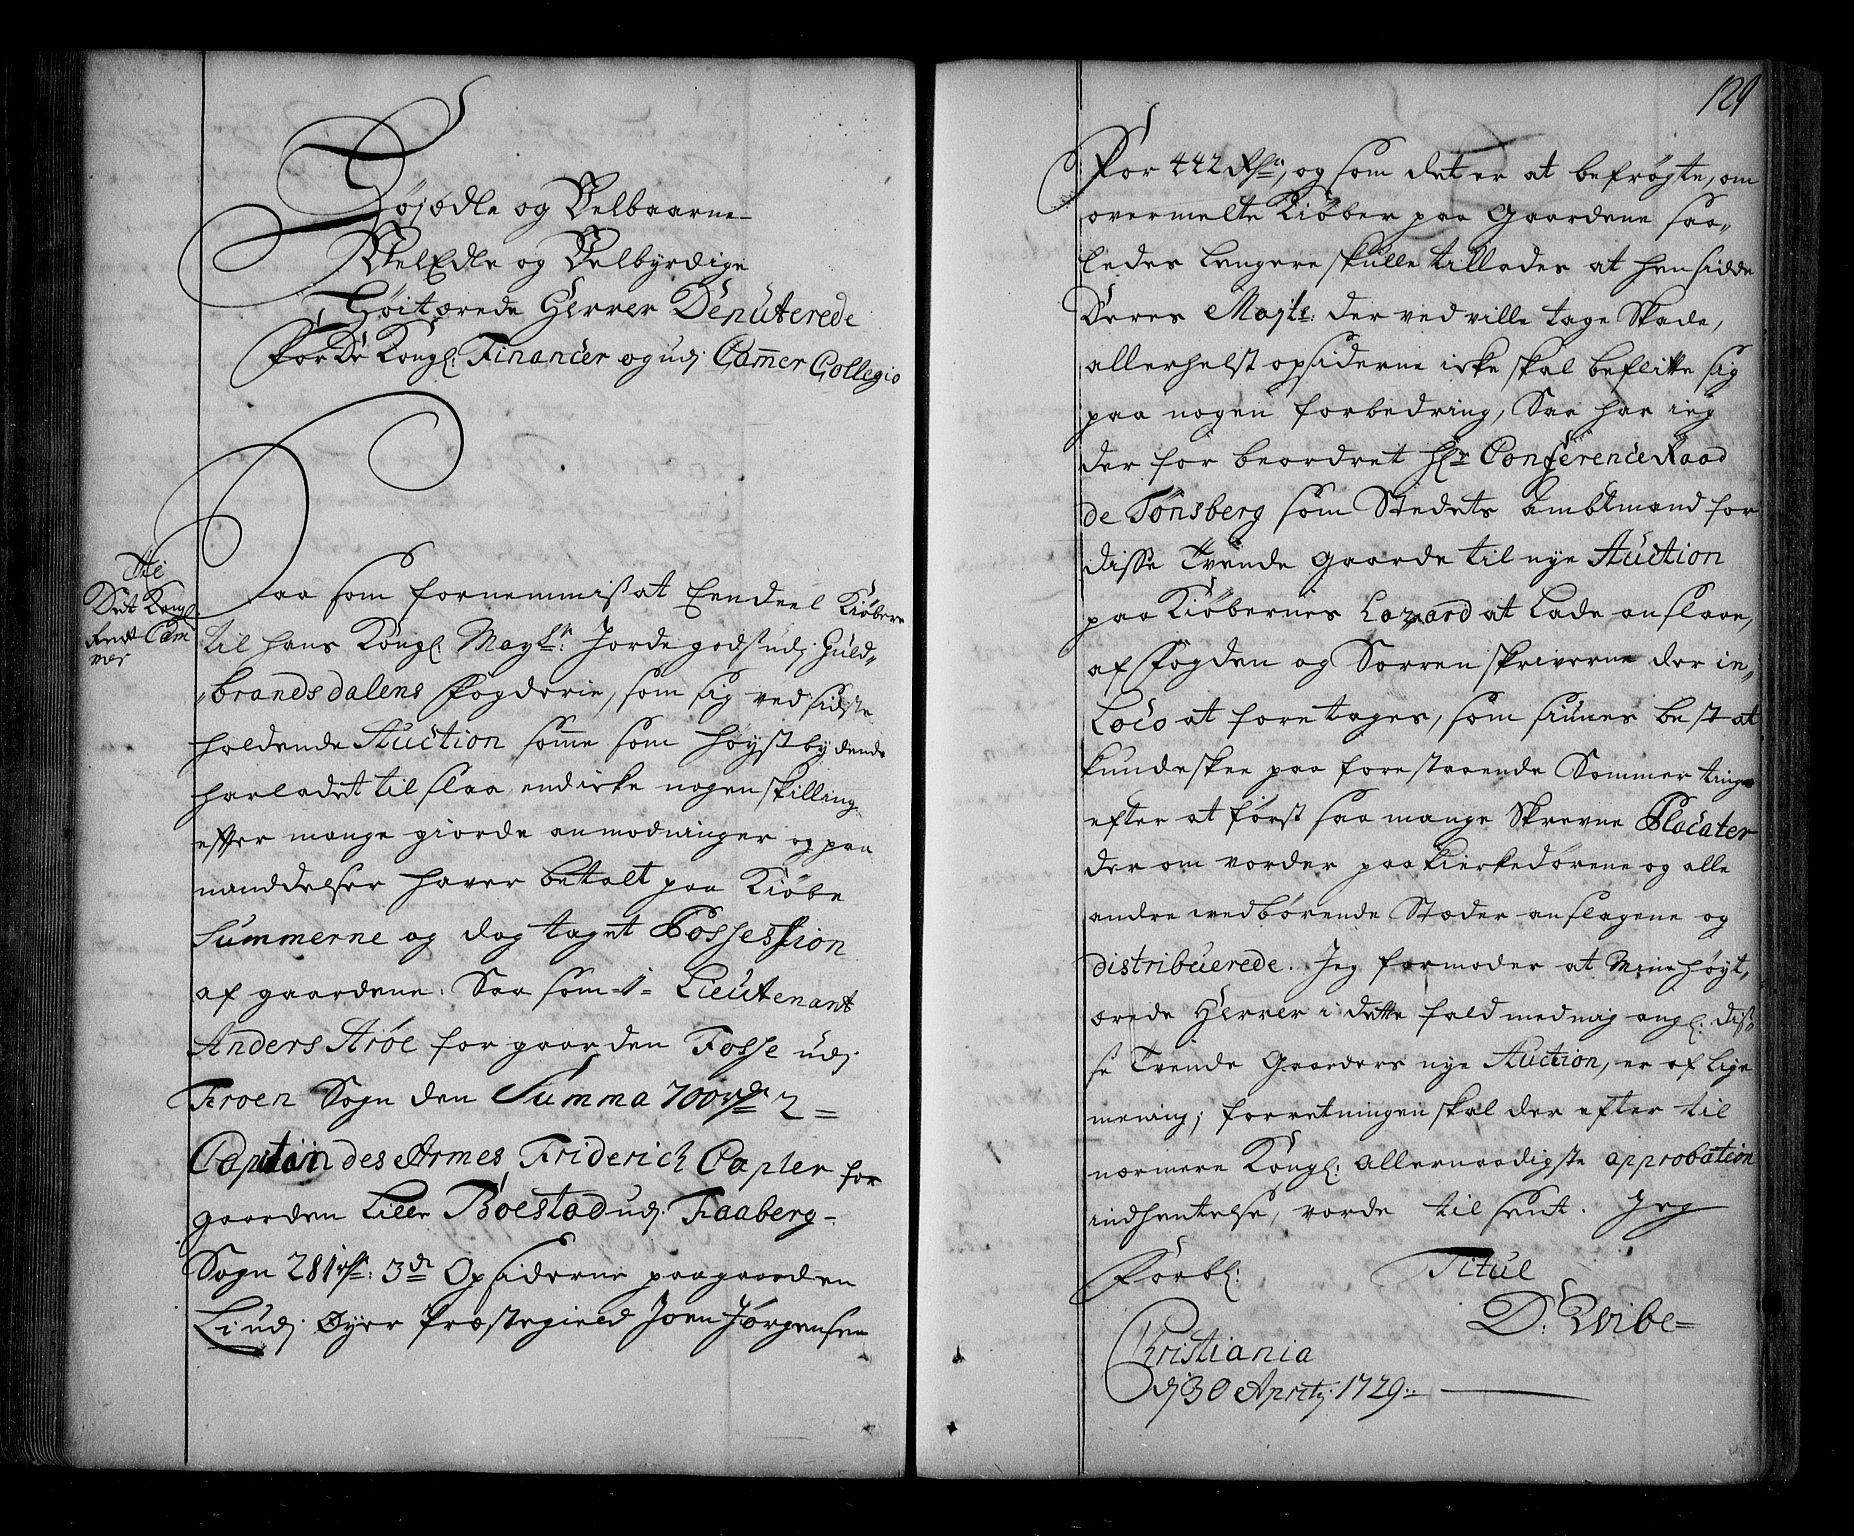 Højædle og Velbaarne
VelEdle og Velbyrdige
Høitærede Herrer Deputerede
For De Kongl: Financer og udj Cammer Collegio
Til
Det Kongl.
Rente Cam
mer
Saasom fornemmis at Eendeel Kiøbere
til hans Kongl: Mayts: Jordegods udj Guld„
„brandsdalens Fogderie, som sig ved sidste
holdende Auction somme som høystbydende
har ladet tilslaa, end icke nogen skilling
effter mange giorde anmodninger og paa
mindelser haver betalt paa Kiøbe
Summerne og dog taget Possession
af gaardene: Saasom 1 Lieutenant
Anders Arøe for gaarden Fosse udj
Froen Sogn den Summa 700 rdr 2
Capitain des Armes Friderich Capler for
gaarden Lille Bøestad udj Faaberg
Sogn 281 rdr: 3de Opsiderne paa gaarden
Li udj Øyer Præstegield Joen Jørgensen
129
For 442 Rdr, og som det er at befrøgte, om
overmelte Kiøber paa Gaardene saa„
ledes Længere skulle tillades at hensidde
Deres Mayts: derved ville tage Skade,
allerhelst opsiderne icke skal beflitte sig
paa nogen forbedring, Saa har ieg
der for beordret Hr ConferenceRaad
de Tønsberg som Stedets Ambtmand for
disse Trende Gaarde til nye Auction
paa Kiøbernes Lazard at lade anslaae,
af Fogden og Sorrenskriverne der in„
Loco at foretages, som siunes best at
kunde skee paa forestaaende Sommer ting
efter at først saa mange Skrevne Placater
der om vorder paa Kierkedørene og alle
andre vedbørende Stæder anslagene og
distribuerede. Jeg formoder at Mine høyt„
ærede Herrer i dette fald med mig angl: dis„
se Trende Gaarders nye Auction, er af lige
mening; forretningen skal der efter til
nærmere Kongl: allernaadigste approbation
indhentelse, vorde tilsent. Jeg
Forbl: Titul
D: Wibe
Christiania
dj 30 Aprilj 1729.